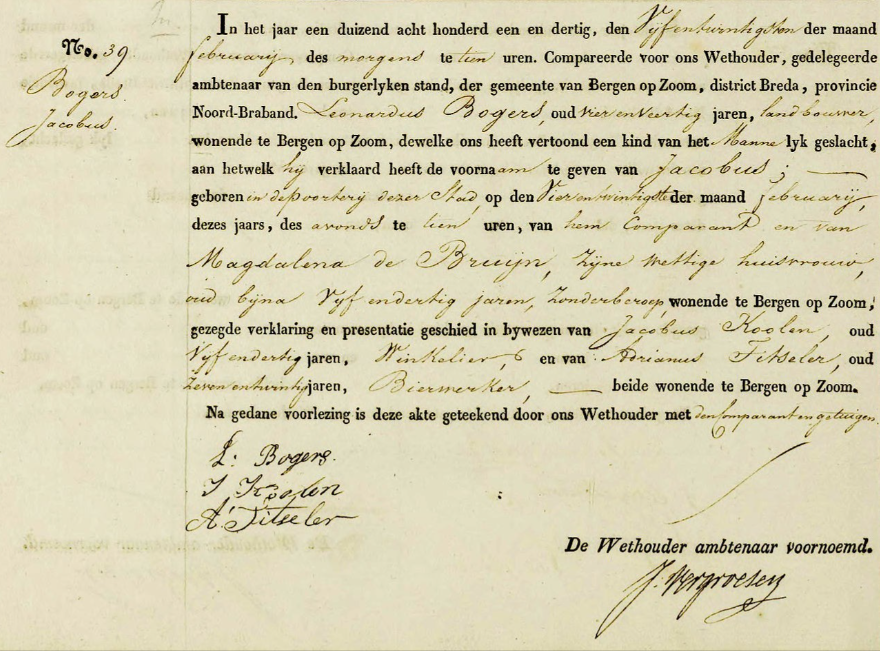 No. 39
Bogers
Jacobus.
In het jaar een duizend acht honderd een en dertig, den Vijfentwintigsten der maand
februarij, des morgens te tien uren. Compareerde voor ons Wethouder, gedelegeerde
ambtenaar van den burgerlyken stand, der gemeente van Bergen op Zoom, district Breda, provincie
Noord-Braband. Leonardus Bogers, oud vierenveertig jaren, landbouwer,
wonende te Bergen op Zoom, dewelke ons heeft vertoond een kind van het Mannelyk geslacht,
aan hetwelk hij verklaard heeft de voornaam te geven van Jacobus; —
geboren in de poorterij dezer Stad, op den Vierentwintigste der maand februarij,
dezes jaars, des avonds te tien uren, van hem Comparant en van
Magdalena de Bruijn, Zijne wettige huisvrouw,
oud bijna Vijf endertig jaren, Zonderberoep, wonende te Bergen op Zoom,
gezegde verklaring en presentatie geschied in bywezen van Jacobus Koolen, oud
Vijf endertig jaren, Winkelier, en van Adrianus Fitseler, oud
Zevenentwintig jaren, Bierwerker, — beide wonende te Bergen op Zoom.
Na gedane voorlezing is deze akte geteekend door ons Wethouder met den Comparant en getuigen.
L: Bogers.
J, Koolen
A: Fitseler
De Wethouder ambtenaar voornoemd.